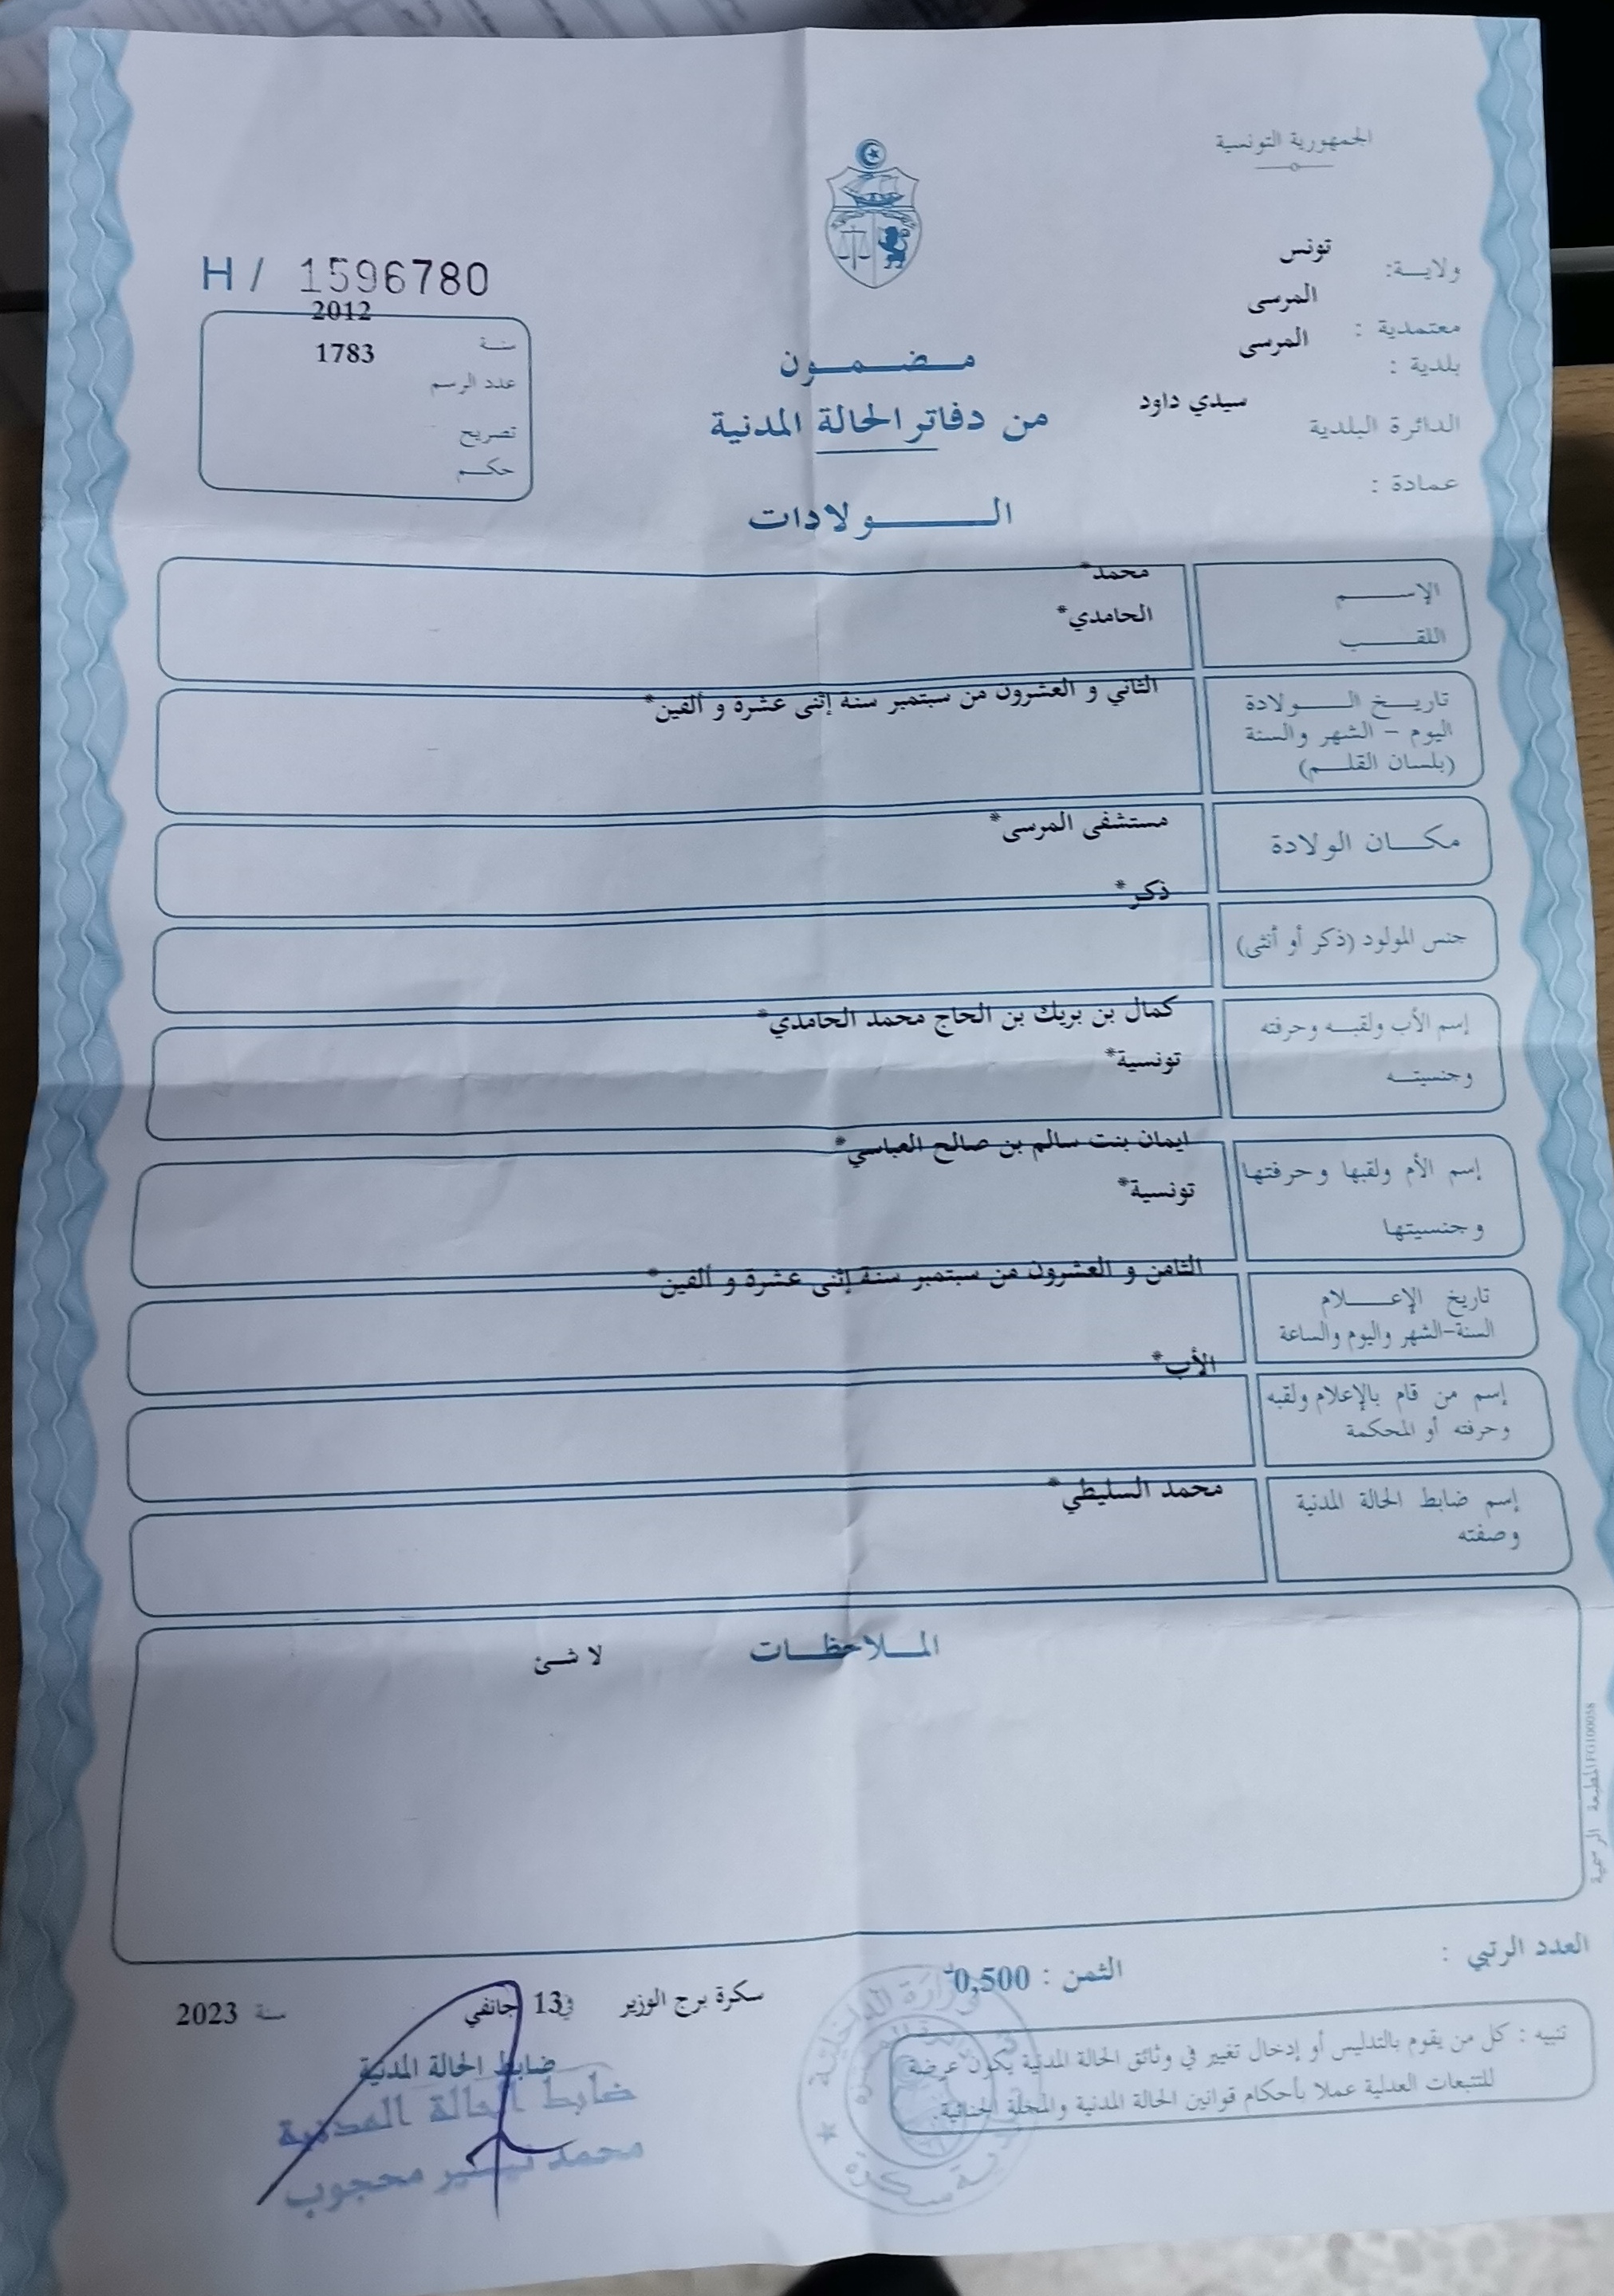 الجمهورية التونسية
ولايـــة: تونس
معتمدية : المرسى
بلدية : المرسى
الدائرة البلدية سيدي داود
عمادة :
H / 1596780
سنة 2012
عدد الرسم 1783
تصريح
حكم
مضمون
من دفاتر الحالة المدنية
الــولادات
الإســـم محمد*
اللقـــب الحامدي*
تاريـــخ الـــولادة الثاني و العشرون من سبتمبر سنة إثنى عشرة و ألفين*
اليوم - الشهر والسنة
(بلسان القلـــم)
مكـــان الولادة مستشفى المرسى*
جنس المولود (ذكر أو أنثى) ذكر*
إسم الأب ولقبـــه وحرفته كمال بن بريك بن الحاج محمد الحامدي*
وجنسيتـــه تونسية*
إسم الأم ولقبها وحرفتها ايمان بنت سالم بن صالح العباسي*
وجنسيتها تونسية*
تاريخ الإعـــلام الثامن و العشرون من سبتمبر سنة إثنى عشرة و ألفين*
السنة-الشهر واليوم والساعة
إسم من قام بالإعلام ولقبه الأب*
وحرفته أو المحكمة
إسم ضابط الحالة المدنية محمد السليطي*
وصفته
المـلاحظـات لا شئ
المطبعة الرسمية FG100058
العدد الرتبي :
الثمن : 0,500
سكرة برج الوزير في 13 جانفي سنة 2023
ضابط الحالة المدنية
ضابط الحالة المدنية
محمد محجوب
تنبيه : كل من يقوم بالتدليس أو إدخال تغيير في وثائق الحالة المدنية يكون عرضة
للتتبعات العدلية عملا بأحكام قوانين الحالة المدنية والمجلة الجنائية.
وزارة الداخلية
بلدية سكرة